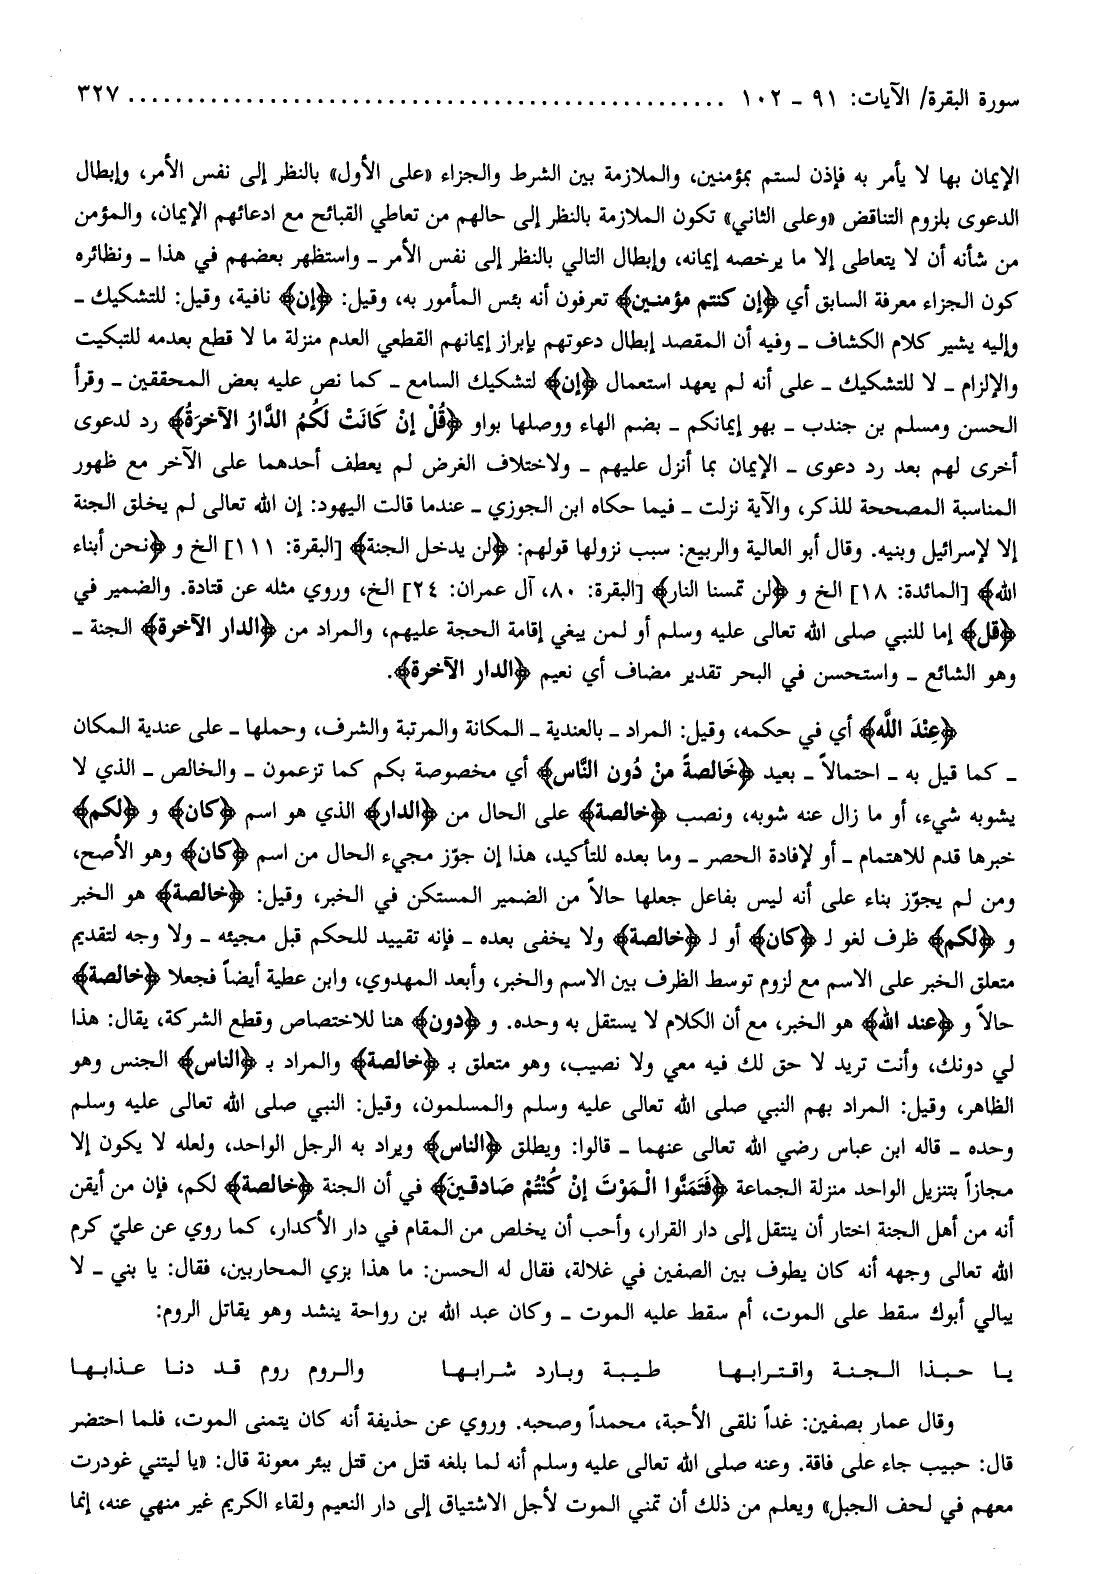 سورة البقرة/ الآيات: ٩١ ـ ١٠٢ .................................................. ٣٢٧
الإيمان بها لا يأمر به فإذن لستم بمؤمنين، والملازمة بين الشرط والجزاء «على الأول» بالنظر إلى نفس الأمر، وإبطال
الدعوى بلزوم التناقض «وعلى الثاني» تكون الملازمة بالنظر إلى حالهم من تعاطي القبائح مع ادعائهم الإيمان، والمؤمن
من شأنه أن لا يتعاطى إلا ما يرخصه إيمانه، وإبطال التالي بالنظر إلى نفس الأمر ـ واستظهر بعضهم في هذا ـ ونظائره
كون الجزاء معرفة السابق أي ﴿إن كنتم مؤمنين﴾ تعرفون أنه بئس المأمور به، وقيل: ﴿إن﴾ نافية، وقيل: للتشكيك ـ
وإليه يشير كلام الكشاف ـ وفيه أن المقصد إبطال دعوتهم بإبراز إيمانهم القطعي العدم منزلة ما لا قطع بعدمه للتبكيت
والإلزام ـ لا للتشكيك ـ على أنه لم يعهد استعمال ﴿إن﴾ لتشكيك السامع ـ كما نص عليه بعض المحققين ـ وقرأ
الحسن ومسلم بن جندب ـ بهو إيمانكم ـ بضم الهاء ووصلها بواو ﴿قُلْ إِنْ كَانَتْ لَكُمُ الدَّارُ الآخرَةُ﴾ رد لدعوى
أخرى لهم بعد رد دعوى ـ الإيمان بما أنزل عليهم ـ ولاختلاف الغرض لم يعطف أحدهما على الآخر مع ظهور
المناسبة المصححة للذكر، والآية نزلت ـ فيما حكاه ابن الجوزي ـ عندما قالت اليهود: إن الله تعالى لم يخلق الجنة
إلا لإسرائيل وبنيه. وقال أبو العالية والربيع: سبب نزولها قولهم: ﴿لن يدخل الجنة﴾ [البقرة: ١١١] الخ و ﴿نحن أبناء
الله﴾ [المائدة: ١٨] الخ و ﴿لن تمسنا النار﴾ [البقرة: ٨٠، آل عمران: ٢٤] الخ، وروي مثله عن قتادة. والضمير في
﴿قل﴾ إما للنبي صلى الله تعالى عليه وسلم أو لمن يبغي إقامة الحجة عليهم، والمراد من ﴿الدار الآخرة﴾ الجنة ـ
وهو الشائع ـ واستحسن في البحر تقدير مضاف أي نعيم ﴿الدار الآخرة﴾.
﴿عِنْدَ اللَّه﴾ أي في حكمه، وقيل: المراد ـ بالعندية ـ المكانة والمرتبة والشرف، وحملها ـ على عندية المكان
ـ كما قيل به ـ احتمالاً ـ بعيد ﴿خَالصةً منْ دُون النَّاس﴾ أي مخصوصة بكم كما تزعمون ـ والخالص ـ الذي لا
يشوبه شيء، أو ما زال عنه شوبه، ونصب ﴿خالصة﴾ على الحال من ﴿الدار﴾ الذي هو اسم ﴿كان﴾ و ﴿لكم﴾
خبرها قدم للاهتمام ـ أو لإفادة الحصر ـ وما بعده للتأكيد، هذا إن جوّز مجيء الحال من اسم ﴿كان﴾ وهو الأصح،
ومن لم يجوّز بناء على أنه ليس بفاعل جعلها حالاً من الضمير المستكن في الخبر، وقيل: ﴿خالصة﴾ هو الخبر
و ﴿لكم﴾ ظرف لغو لـ ﴿كان﴾ أو لـ ﴿خالصة﴾ ولا يخفى بعده ـ فإنه تقييد للحكم قبل مجيئه ـ ولا وجه لتقديم
متعلق الخبر على الاسم مع لزوم توسط الظرف بين الاسم والخبر، وأبعد المهدوي، وابن عطية أيضاً فجعلا ﴿خالصة﴾
حالاً و ﴿عند الله﴾ هو الخبر، مع أن الكلام لا يستقل به وحده. و ﴿دون﴾ هنا للاختصاص وقطع الشركة، يقال: هذا
لي دونك، وأنت تريد لا حق لك فيه معي ولا نصيب، وهو متعلق بـ ﴿خالصة﴾ والمراد بـ ﴿الناس﴾ الجنس وهو
الظاهر، وقيل: المراد بهم النبي صلى الله تعالى عليه وسلم والمسلمون، وقيل: النبي صلى الله تعالى عليه وسلم
وحده ـ قاله ابن عباس رضي الله تعالى عنهما ـ قالوا: ويطلق ﴿الناس﴾ ويراد به الرجل الواحد، ولعله لا يكون إلا
مجازاً بتنزيل الواحد منزلة الجماعة ﴿فَتَمَنَّوا الْمَوْتَ إنْ كُنْتُمْ صَادقينَ﴾ في أن الجنة ﴿خالصة﴾ لكم، فإن من أيقن
أنه من أهل الجنة اختار أن ينتقل إلى دار القرار، وأحب أن يخلص من المقام في دار الأكدار، كما روي عن عليّ كرم
الله تعالى وجهه أنه كان يطوف بين الصفين في غلالة، فقال له الحسن: ما هذا بزي المحاربين، فقال: يا بني ـ لا
يبالي أبوك سقط على الموت، أم سقط عليه الموت ـ وكان عبد الله بن رواحة ينشد وهو يقاتل الروم:
يا حبذا الجنة واقترابها طيبة وبارد شرابها والروم روم قد دنا عذابها
وقال عمار بصفين: غداً نلقى الأحبة، محمداً وصحبه. وروي عن حذيفة أنه كان يتمنى الموت، فلما احتضر
قال: حبيب جاء على فاقة. وعنه صلى الله تعالى عليه وسلم أنه لما بلغه قتل من قتل ببئر معونة قال: «يا ليتني غودرت
معهم في لحف الجبل» ويعلم من ذلك أن تمني الموت لأجل الاشتياق إلى دار النعيم ولقاء الكريم غير منهي عنه، إنما